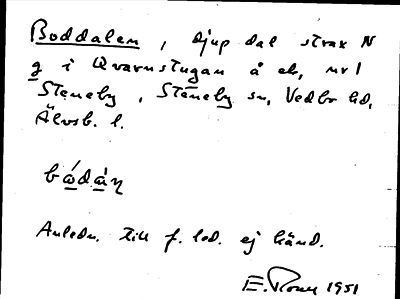 Boddalen, djup dal strax N
g i Qvarnstugan å ek, nr 1
Steneby, Steneby sn, Vedbo hd,
Älvsb. l.
bódàṇ
Anledn. till f. led. ej känd.
E. Rony 1951